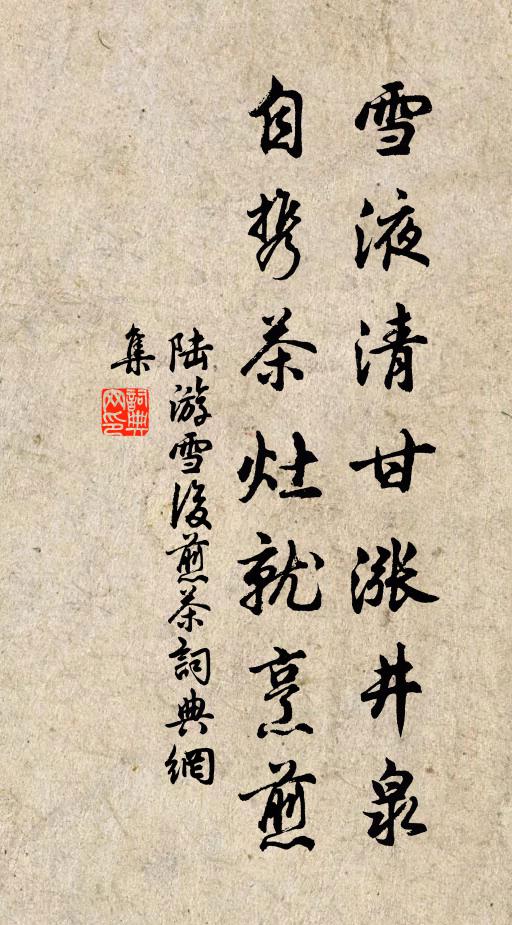 雪液清甘漲井泉
自携茶灶就烹煎
陆游雪後煎茶詞典網
集
詞典
网印